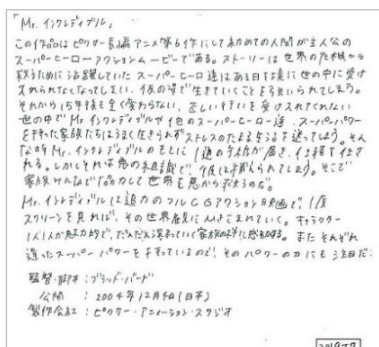 「Mr. インクレディブル」
この作品はピクサー長編アニメ第6作にして初めての人間が主人公の
スーパーヒーローアクションムービーである。ストーリーは世界の危機から
救うために活躍していたスーパーヒーロー達はある日を境に世の中に受け
入れられなくなってしまい、仮の姿で生きていくことを強いられてしまう。
それから15年様子も全く変わらない、正しい行いを受け入れてくれない
世の中でMr.インクレディブルや他のスーパーヒーロー達、スーパーパワー
を持った家族たちはうまく生きられずストレスのたまる生活を送ってしまう。そん
な時Mr.インクレディブルのもとに1通の手紙が届き、仕事を任さ
れる。しかしそれは悪の組織で、彼は捕えられてしまう。そこで
家族みんなで協力して世界を悪から救うのだ。
Mr.インクレディブルは迫力のフルCGアクション映画で、1度
スクリーンを見れば、その世界観に引きこまれていく。キャラクター
1人1人が魅力的で、だんだん深まっていく家族の絆に感動する。またそれぞれ
違ったスーパーパワーを持っているので、そのパワーの力にも注目だ。
監督・脚本：ブラッド・バード
公開：2004年12月4日(日本)
製作会社：ピクサー・アニメーション・スタジオ